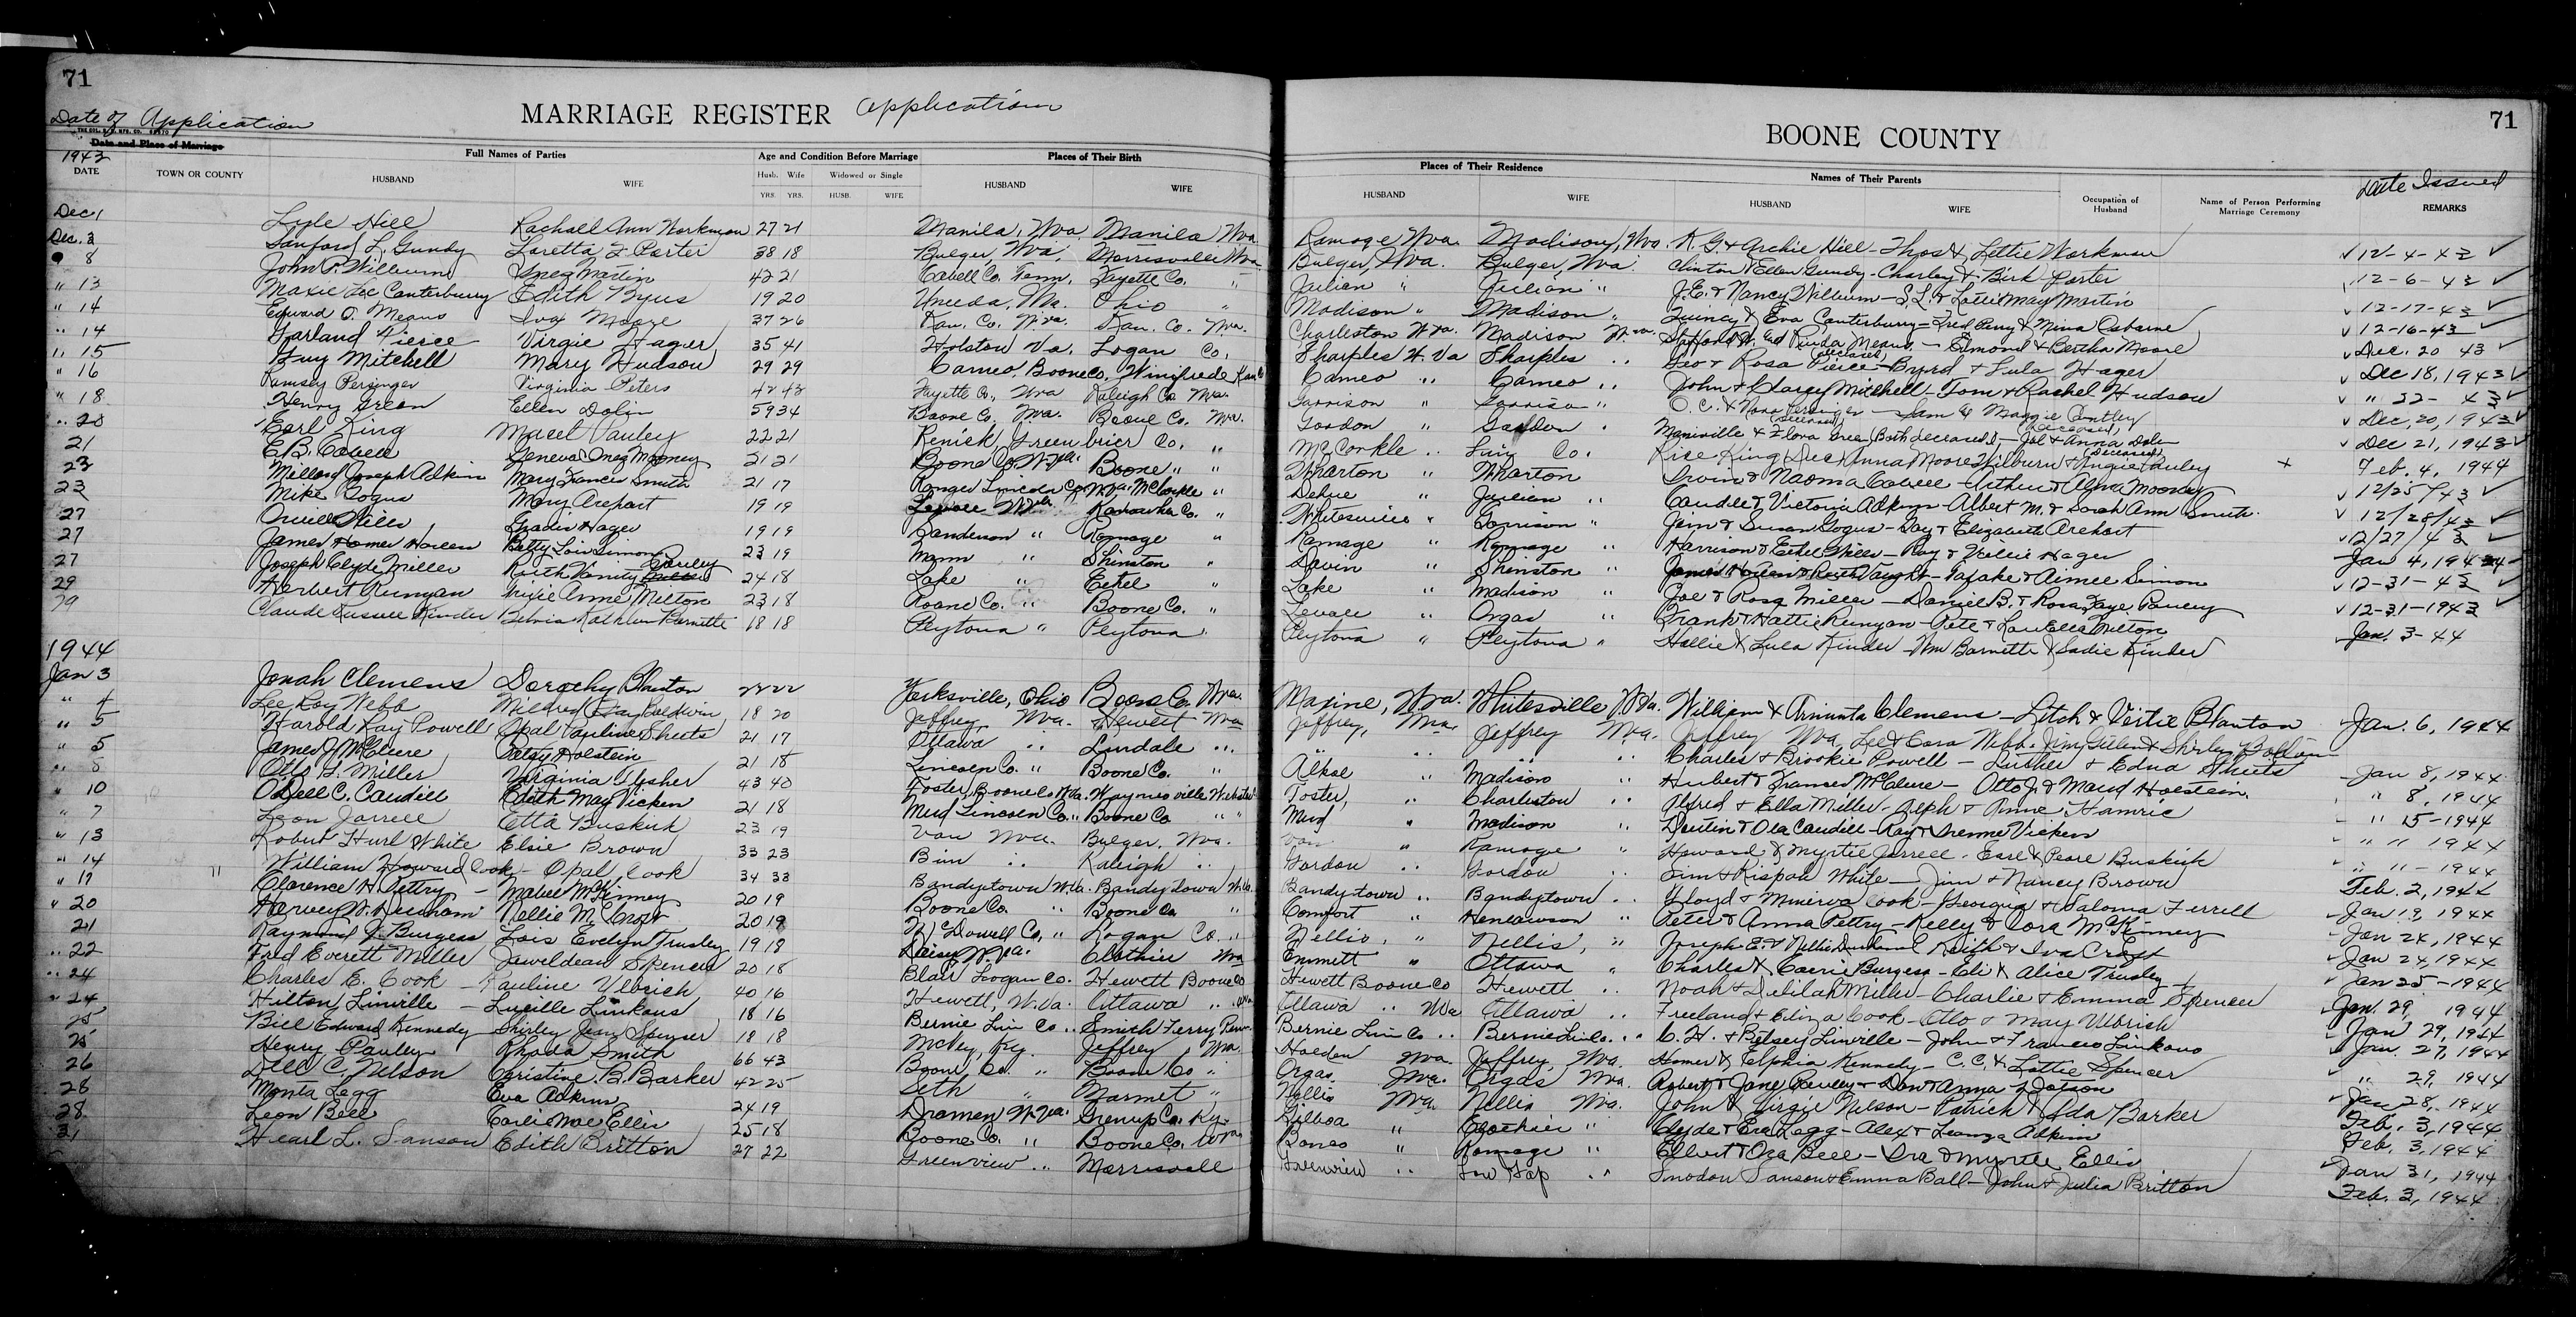 71
Date of Application
MARRIAGE REGISTER Application
THE COL. B. B. MFG. CO.
Date and Place of Marriage
1943
DATE TOWN OR COUNTY
Full Names of Parties
HUSBAND WIFE
Age and Condition Before Marriage
Husb. Wife Widowed or Single
YRS. YRS. HUSB. WIFE
Places of Their Birth
HUSBAND WIFE
Dec 1 Lyle Hill Rachall Ann Workman 27 21 Manila, Wva. Manila Wva
Dec. 3 Sanford L. Gundy Loretta F Porter 38 18 Bulger, Wva. Morrisvale Wva
8 John P. Wilburn Inez Martin 42 21 Cabell Co. Fayette Co. "
" 13 Maxie Lee Canterburry Edith Byus 19 20 Uneeda, Wva. Ohio "
" 14 Edward O. Means Iva Moore 37 26 Kan. Co. W.va. Kan. Co. Wva.
" 14 Garland Pierce Virgie Hager 35 41 Holston Va. Logan Co.
" 15 Guy Mitchell Mary Hudson 29 29 Cameo, Boone Co, Winifrede Kan Co
" 16 Ramsey Persinger Virginia Peters 42 43 Fayette Co, Wva Raleigh Co Wva.
" 18 Henry Green Ellen Dolin 59 34 Boone Co. Wva. Boone Co. Wva.
" 20 Earl King Macel Pauley 22 21 Renick, Greenbrier Co. "
21 E.B. Cabell Geneva Inez Mooney 21 21 Boone Co. W.Va. Boone " "
23 Millard Joseph Adkins Mary Frances Smith 21 17 Ranger Lincoln Co. W.Va. McCorkle "
23 Mike Gogus Mary Arehart 19 19 Kanawha Co. "
27 Orville Hager 19 19 Sanderson " Ramage "
27 James Homer Betty Lois Simon 23 19 Mann " Shinston "
27 Joseph Clyde Miller Ruth Vanity Pauley 24 18 Lake " Ethel "
29 Herbert Runyan Anne Milton 23 18 Roane Co. " Boone Co. "
29 Claude Russell Kinder Kathleen Barnette 18 18 Peytona " Peytona
1944
Jan 3 Jonah Clemens Dorothy Blanton 22 22 Yorksville, Ohio Boone Co. Wva.
" 4 Lee Roy Webb Mildred Baldwin 18 20 Jeffrey, Wva. Hewett Wva
" 5 Harold Ray Powell Opal Pauline Sheets 21 17 Ottawa " Lundale "
" 5 James J McClure Patsy Holstein 21 18 Lincoln Co. " Boone Co. "
" 8 Otto G. Miller Virginia 43 40 Foster, Boone Co Wva. Webster
" 10 Odell C. Caudill Edith May Vicken 21 18 Mud Lincoln Co. " Boone Co " "
" 7 Leon Jarrell Etta Buskirk 23 19 Van Wva. Bulger, Wva.
" 13 Robert Hurl White Elsie Brown 33 23 Bim " Raleigh "
" 14 William Howard Cook - Opal Cook 34 33 Bandytown W.Va. Bandytown W.Va.
" 17 Clarence H Pettry - Mabel McKinney 20 19 Boone Co. " Boone Co "
" 20 Harvey Nellie M. Croft 20 19 McDowell Co, " Logan Co. "
21 Raymond J. Burgess Lois Evelyn Trusley 19 18 Daisy W.Va. Clothier Wva
" 22 Fred Everett Miller Jaweldean Spencer 20 18 Blair Logan Co. Hewett Boone Co
" 24 Charles E. Cook - Pauline Ulbrich 40 16 Hewett, W.Va. Ottawa "
" 24 Hilton Linville - Lucille Linkous 18 16 Bernie Lin Co " Smith Ferry Penn.
25 Bill Edward Kennedy - Shirley Jean Spencer 18 18 McVey, Ky. Jeffrey, Wva.
25 Henry Pauley Rhoda Smith 66 43 Boone, Co. " Boone Co "
26 Dell C. Nelson Christine B. Barker 42 25 Seth " Marmet "
28 Monta Legg Eva Adkins 24 19 Dramen W.Va. Grenup Co. Ky.
28 Leon Bell Earlie Mae Ellis 25 18 Boone Co. " Boone Co. Wva
31 Hearl L. Sanson Edith Britton 27 22 Greenview " Morrisvale
71
BOONE COUNTY
Places of Their Residence
HUSBAND WIFE
Names of Their Parents
HUSBAND WIFE
Occupation of Husband
Name of Person Performing Marriage Ceremony
Date Issued
REMARKS
Ramage Wva. Madison, Wva. K.G. & Archie Hill - Thos & Lettie Workman ✓ 12-4-43 ✓
Bulger, Wva. Bulger, Wva. Clinton & Ellen Gundy - Charley & Birk Porter 12-6-43 ✓
Julian " Julian " J.E. & Nancy Wilburn - S.L. & Lottie May Martin 12-17-43 ✓
Madison " Madison " Quincy & Eva Canterburry - Fred Perry & Mina Osborne ✓ 12-16-43 ✓
Charleston W.Va. Madison W.va. Means - Edmond & Bertha Moore ✓ Dec. 20 43 ✓
Sharples W.Va Sharples " Geo & Rosa Pierce (deceased) - Byrd & Lula Hager ✓ Dec 18, 1943 ✓
Cameo " Cameo " John & Mitchell - Tom & Rachel Hudson ✓ " 22- 43 ✓
Garrison " Garrison " O.C. & Nora Persinger - Sam & Maggie ✓ Dec, 20, 1943 ✓
Gordon " Gordon " & Flora Green (Both deceased) - Joe & Anna Dolin ✓ Dec 21, 1943 ✓
McCorkle " Lin Co. Rice King & Anna Moore Wilburn & Angie Pauley + Feb. 4, 1944
Wharton " Wharton Irvin & Naoma Cabell - Arthur & Alma Mooney ✓ 12/25/43 ✓
Dehue " Julian " Caudle & Victoria Adkins - Albert M. & Sarah Ann Smith. ✓ 12/28/43 ✓
Whitesville " Garrison " Sam & Susan Gogus - & Elizabeth Arehart ✓ 12/27/43 ✓
Ramage " Ramage " Harrison & Ethel - Ray & Hager - Jan 4, 1944
Davin " Shinston " - & Aimee Simon ✓ 12-31-43 ✓
Lake " Madison " Joe & Rosa Miller - Daniel B. & Rosa Faye Pauley ✓ 12-31-1943 ✓
Orgas " Frank & Hattie Runyan - Pete & Milton - Jan. 3-44
Peytona " Peytona " Hallie & Lula Kinder - Wm Barnette & Sadie Kinder
Maxine, Wva. Whitesville W.Va. William & Clemens - Litch & Blanton - Jan. 6, 1944
Jeffrey, Wva. Jeffrey Wva. Jeffrey Wva. Lee & Cora Webb.
" " " " Charles & Brookie Powell - Luther & Edna Sheets - Jan 8, 1944
Alkol " Madison " Hubert & Frances McClure - Otto J. & Maud Holstein. " 8, 1944
Foster, " Charleston " Alfred & Ella Miller - & Anna Hamric - " 15-1944
Mud " Madison " & Ola Caudill - Ray & Vicken - " " 1944
Van " Ramage " Howard & Myrtle Jarrell - Earl & Pearl Buskirk - " " - 1944
Gordon " Gordon " Jim & Rispah White - Jim & Nancy Brown Feb. 2, 1944
Bandytown " Bandytown " Floyd & Minerva Cook - George & Saloma Ferrell - Jan 19, 1944
Comfort " " Peter & Anna Pettry - Kelly & Cora McKinney - Jan 24, 1944
Nellis, " Nellis, " Joseph E. & Nellie - Keith & Iva Croft - Jan 24, 1944
Emmett " Ottawa " Charles & Burgess - Eli & Alice Trusley - Jan 25-1944
Hewett Boone Co Hewett " Noah & Delilah Miller - Charlie & Emma Spencer Jan. 29, 1944
Ottawa " Wva Ottawa " Freeland & Eliza Cook - Otto & May Ulbrich Jan 29, 1944
Bernie Lin Co " Bernie Lin Co. " " C.H. & Betsey Linville - John & Frances Linkous Jan. 27, 1944
Holden Wva. Jeffrey, Wva. Homer & Kennedy - C.C. & Lottie Spencer " 29, 1944
Orgas Wva. Orgas Wva. Robert & Jane Pauley - Don & Anna Jan 28, 1944
Nellis Wva Nellis Wva. John & Virgie Nelson - Patrick & Ida Barker Feb. 3, 1944
Gilboa " Clothier " Clyde & Legg - Alex & Adkins Feb. 3, 1944
" Ramage " Elbert & Oza Bell - Ira & Myrtle Ellis Jan 31, 1944
Greenview " Low Gap " Snodon Sanson & Emma Ball - John & Julia Britton Feb. 3, 1944